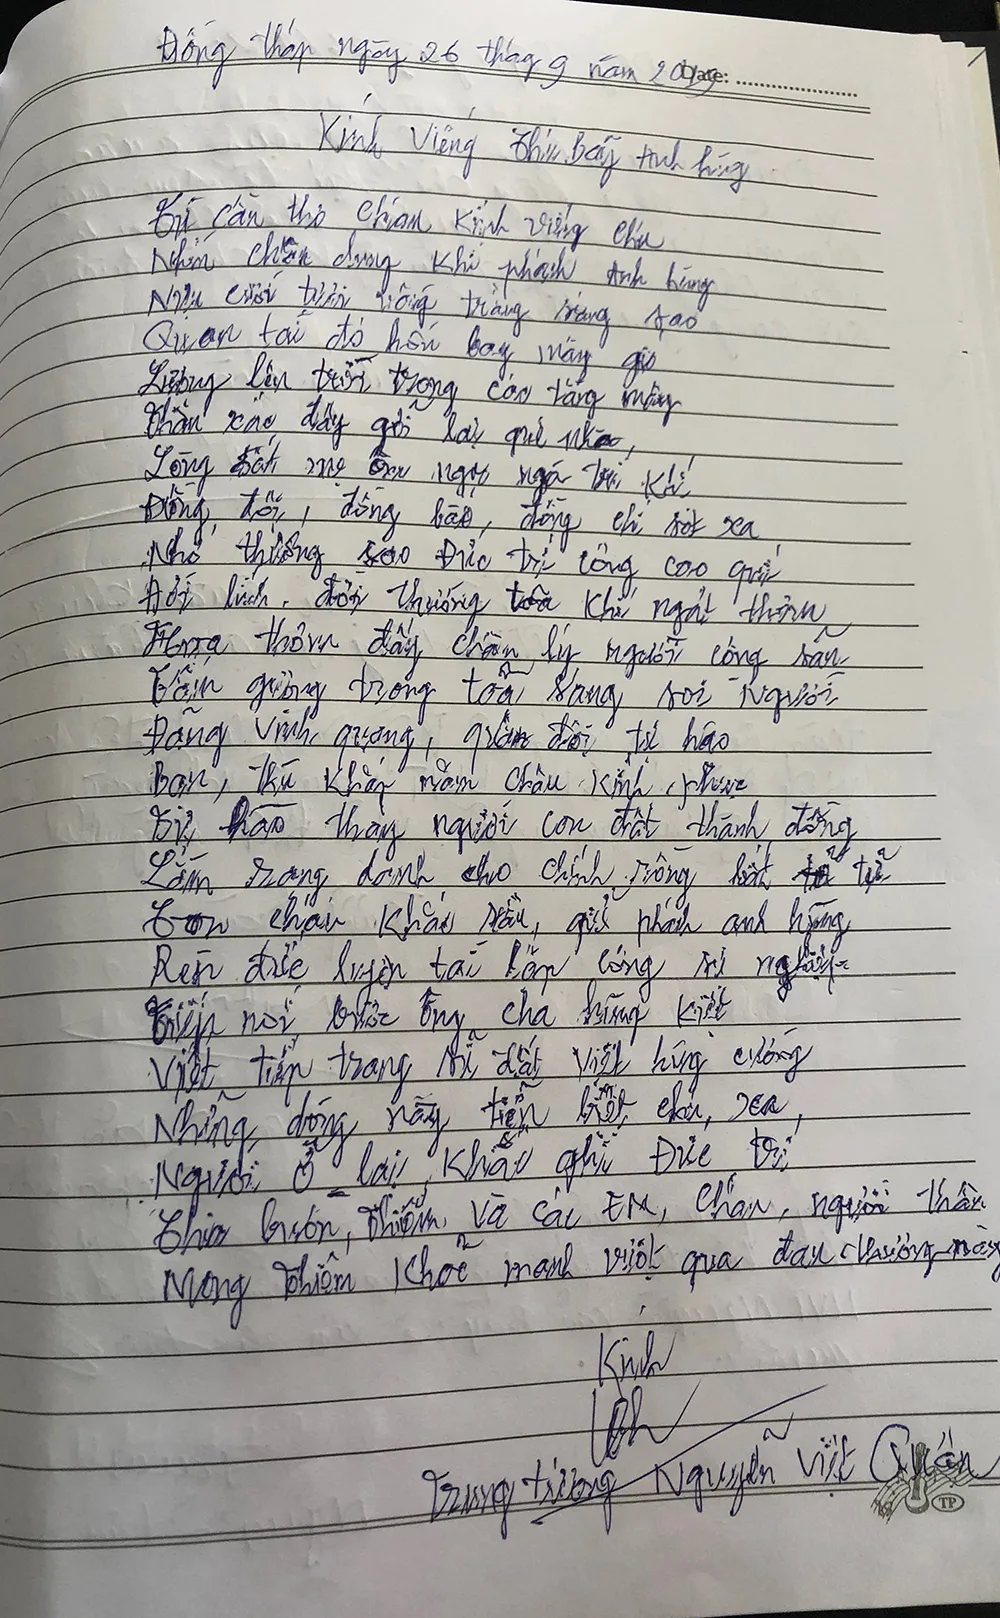 Đồng tháp ngày 26 tháng 9 năm
Date:
Kính Viếng Anh hùng
Từ Cần thơ Kính viếng cháu
Nhìn chân dung khí phách Anh hùng
Nụ cười tươi trăng sáng sao
Quan tài đó hồn bay mây gió
lên trời trong cao tầng mây
Thân xác đây gửi lại quê nhà,
Lòng mẹ
Đồng đội, đồng bào, đồng chí xót xa
Nhớ thương sao Đức trí công cao quý
Đời lính, đời thường khí ngát thơm
thơm đấy chân lý người cộng sản
Tấm gương trong toả sáng soi Người
Đảng Vinh quang, quân đội tự hào
Bạn, thù khắp năm châu kính phục
Tự hào thay người con đất thành đồng
sáng danh cho chính bất tử
Con cháu khắc sâu, anh hùng
Rèn đức luyện tài lập công sự nghiệp
Tiếp nối bước ông cha hùng kiệt
Viết tiếp trang sử đất Việt hùng cường
Những dòng này tiễn biệt cháu, xa,
Người ở lại khắc ghi Đức trí
Chia buồn, Thiếm, Và các EM, Cháu, người thân
Mong Thiếm Khoẻ mạnh vượt qua đau thương này
Kính
Trung tướng Nguyễn Việt Quân
TP